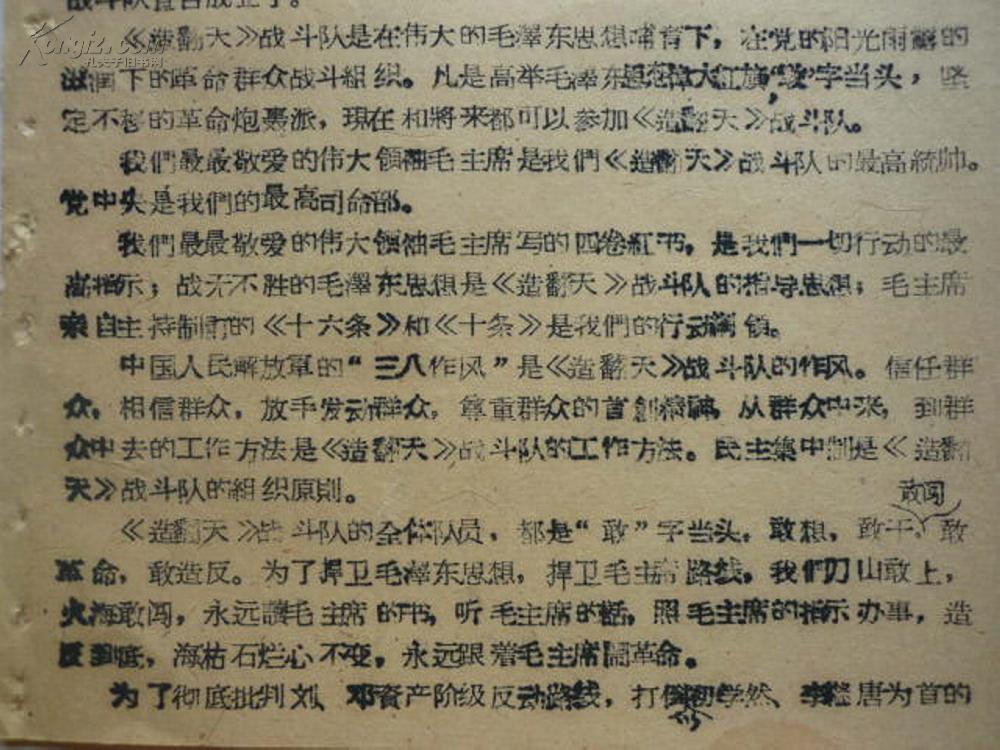 战斗队宣告成立了。
《造翻天》战斗队是在伟大的毛澤东思想哺育下，在党的阳光雨露的
滋润下的革命群众战斗組织。凡是高举毛澤东思想偉大紅旗，“敢”字当头，坚
定不移的革命炮轰派，現在和將来都可以参加《造翻天》战斗队。
我們最最敬爱的伟大領袖毛主席是我們《造翻天》战斗队的最高統帅。
党中央是我們的最高司命部。
我們最最敬爱的伟大領袖毛主席写的四卷紅书，是我們一切行动的最
高指示；战无不胜的毛澤东思想是《造翻天》战斗队的指导思想；毛主席
亲自主持制訂的《十六条》和《十条》是我們的行动綱領。
中国人民解放軍的“三八作风”是《造翻天》战斗队的作风。信任群
众，相信群众，放手发动群众，尊重群众的首創精神，从群众中来，到群
众中去的工作方法是《造翻天》战斗队的工作方法。民主集中制是《造翻
天》战斗队的組织原則。
敢闯
《造翻天》战斗队的全体队员，都是“敢”字当头，敢想，敢干，敢
革命，敢造反。为了捍卫毛澤东思想，捍卫毛主席路綫，我們刀山敢上，
火海敢闯，永远讀毛主席的书，听毛主席的話，照毛主席的指示办事，造
反到底，海枯石烂心不变，永远跟着毛主席鬧革命。
为了彻底批判刘、邓資产阶级反动路綫，打倒 学然、李继唐为首的
Kongfz.com
孔夫子旧书网